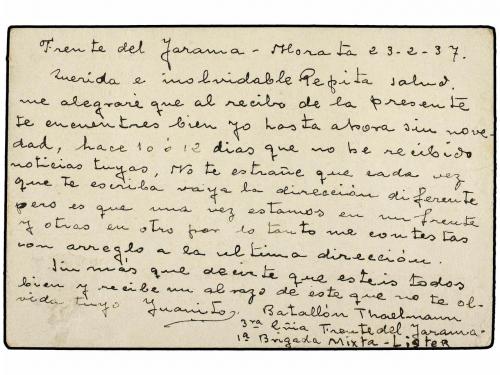 Frente del Jarama - Morata 23-2-37.
Querida e inolvidable Pepita salud,
me alegraré que al recibo de la presente
te encuentres bien yo hasta ahora sin nove
dad, hace 10 ó 12 dias que no he recibido
noticias tuyas, No te estrañe que cada vez
que te escriba vaya la dirección diferente
pero es que una vez estamos en un frente
y otras en otro por lo tanto me contestas
con arreglo a la ultima dirección.
Sin más que decirte que esteis todos
bien y recibe un abrazo de este que no te ol-
vida tuyo Juanito
Batallón Thaelmann
3ra Cñia Frente del Jarama-
1ª Brigada Mixta - Lister